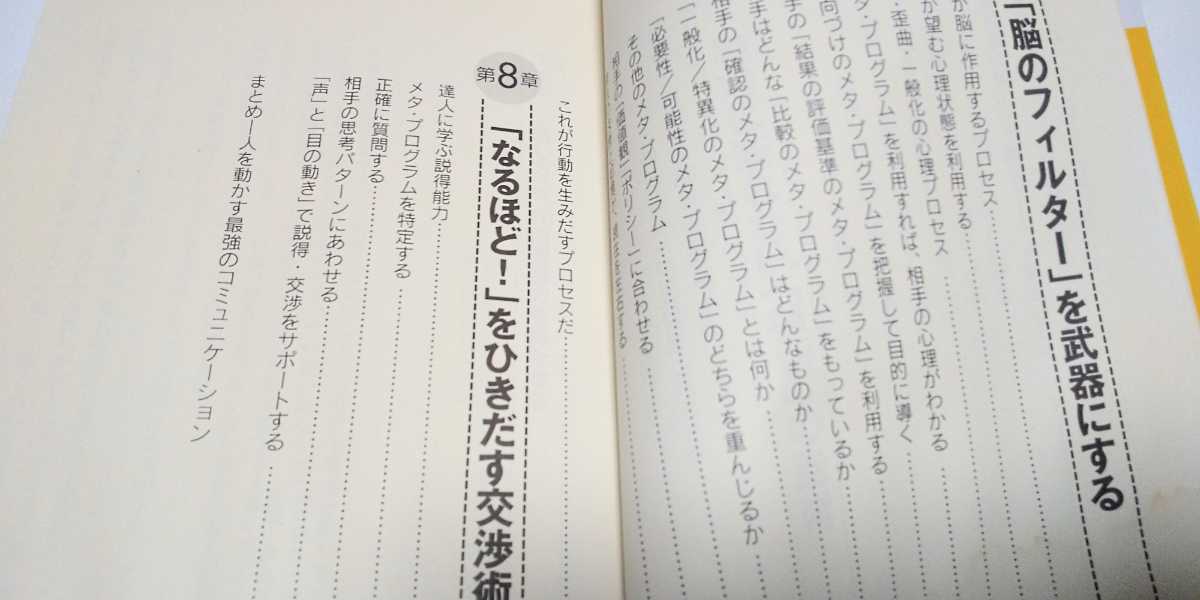 「脳のフィルター」を武器にする
が脳に作用するプロセス
が望む心理状態を利用する
・歪曲・一般化の心理プロセス
タ・プログラム」を利用すれば、相手の心理がわかる
向づけのメタ・プログラム」を把握して目的に導く
手の「結果の評価基準のメタ・プログラム」を利用する
手はどんな「比較のメタ・プログラム」をもっているか
相手の「確認のメタ・プログラム」はどんなものか
「一般化／特異化のメタ・プログラム」とは何か
「必要性／可能性のメタ・プログラム」のどちらを重んじるか
その他のメタ・プログラム
相手の「価値観」「ポリシー」に合わせる
これが行動を生みだすプロセスだ
第8章
「なるほど！」をひきだす交渉術
達人に学ぶ説得能力
メタ・プログラムを特定する
正確に質問する
相手の思考パターンにあわせる
「声」と「目の動き」で説得・交渉をサポートする
まとめ―人を動かす最強のコミュニケーション